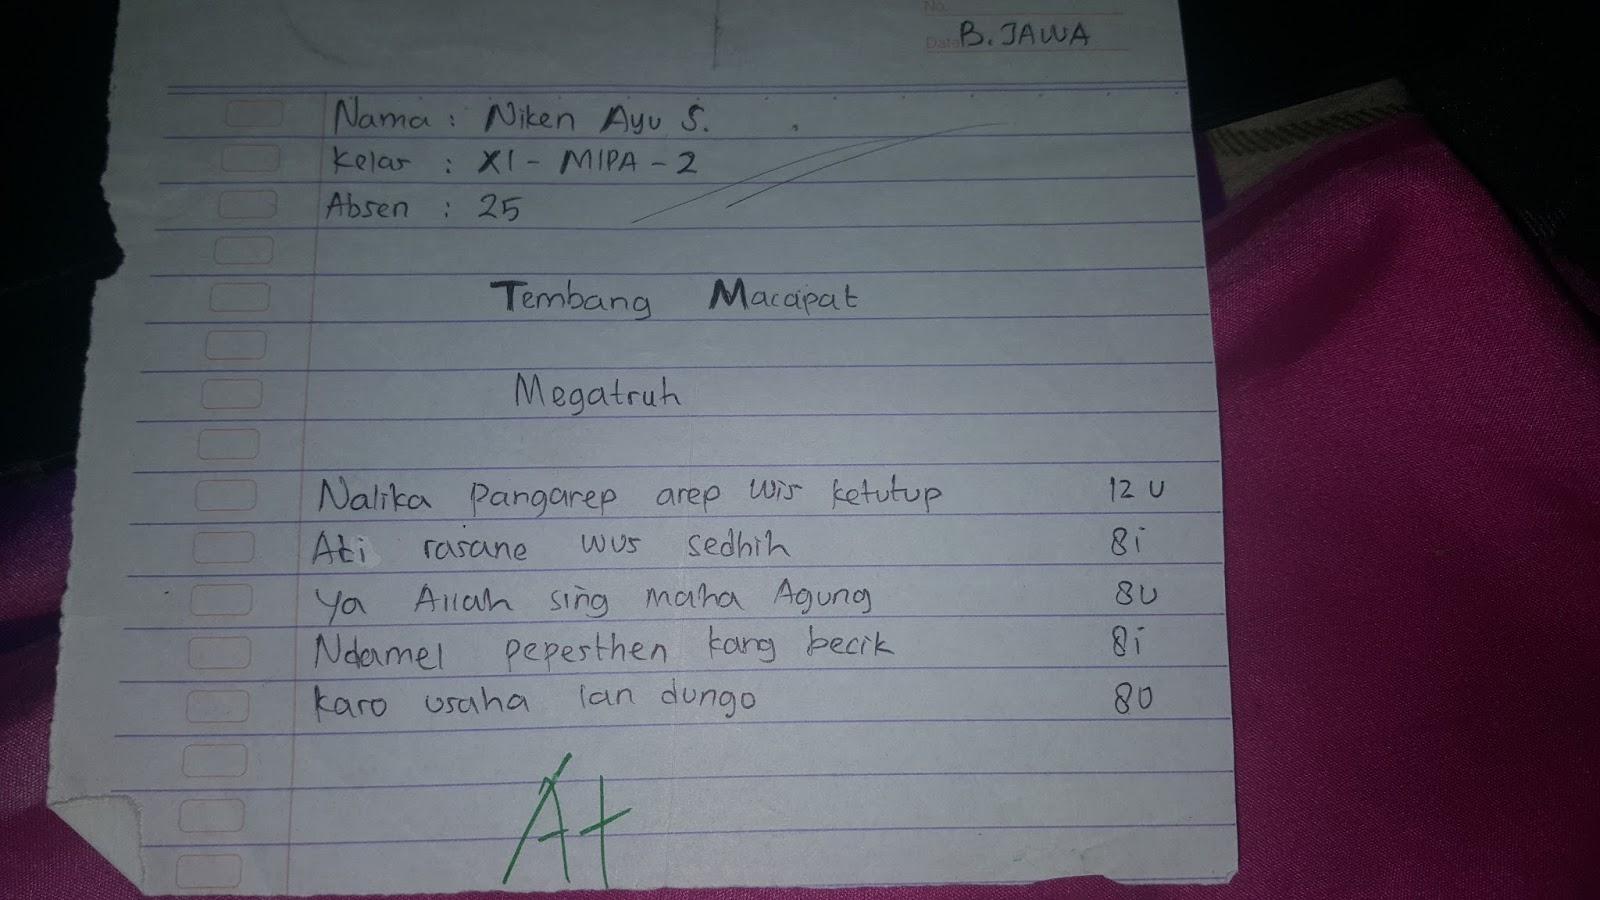 No.
Date B. JAWA
Nama : Niken Ayu S.
Kelas : XI - MIPA - 2
Absen : 25
Tembang Macapat
Megatruh
Nalika Pangarep arep wis ketutup 12 u
Ati rasane wus sedhih 8i
Ya Allah sing maha Agung 8u
Ndamel pepesthen kang becik 8i
Karo usaha lan dungo 8o
A+